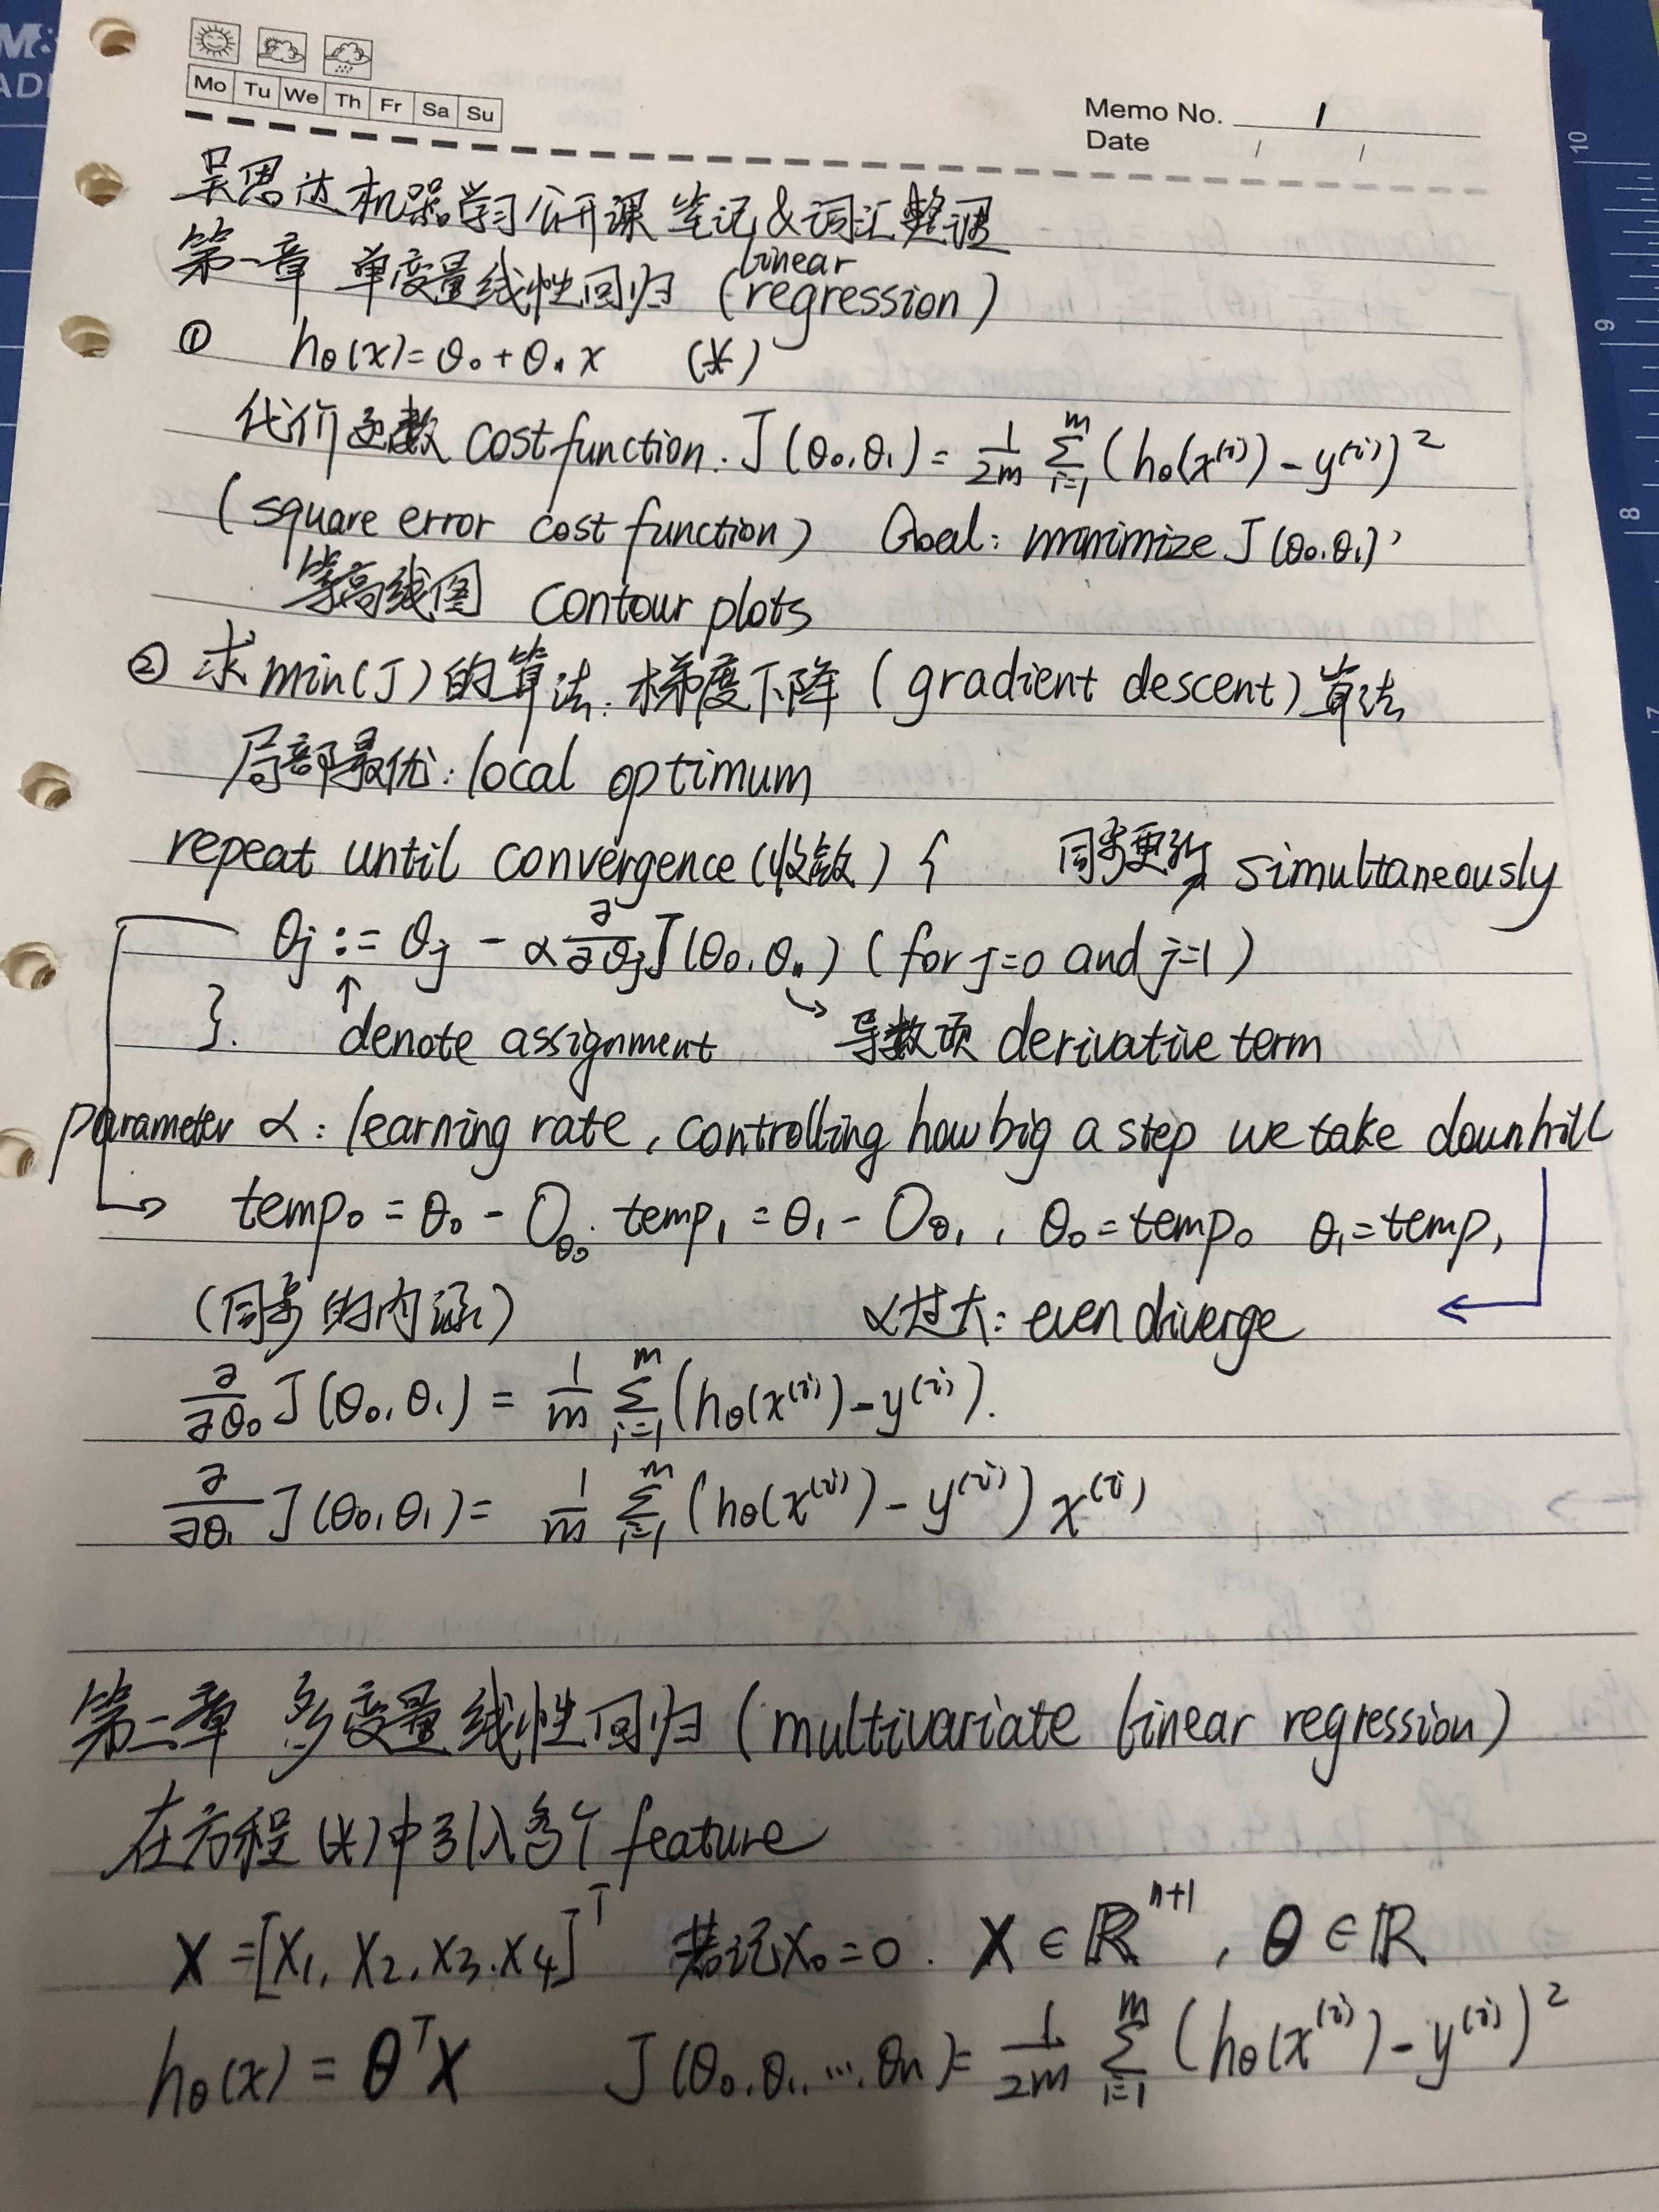 Mo Tu We Th Fr Sa Su
Memo No. 1
Date / /
吴恩达机器学习公开课 笔记&词汇整理
第一章 单变量线性回归 (linear regression)
① hθ(x)=θ₀+θ₁x (*)
代价函数 cost function. J(θ₀,θ₁)= 1/2m Σᵢ₌₁ᵐ (hθ(x⁽ⁱ⁾)-y⁽ⁱ⁾)²
(square error cost function) Goal: minimize J(θ₀,θ₁)
等高线图 contour plots
② 求min(J)的算法: 梯度下降 (gradient descent) 算法
局部最优: local optimum
repeat until convergence (收敛) { 同步更新 simultaneously
θj := θj - α ∂/∂θj J(θ₀,θ₁) (for j=0 and j=1)
}. ↑ denote assignment → 导数项 derivative term
parameter α: learning rate, controlling how big a step we take downhill
→ temp₀ = θ₀ - O_θ₀. temp₁ = θ₁ - O_θ₁, θ₀=temp₀ θ₁=temp₁
(同步的内涵) α过大: even diverge ←
∂/∂θ₀ J(θ₀,θ₁) = 1/m Σᵢ₌₁ᵐ (hθ(x⁽ⁱ⁾)-y⁽ⁱ⁾).
∂/∂θ₁ J(θ₀,θ₁)= 1/m Σᵢ₌₁ᵐ (hθ(x⁽ⁱ⁾)-y⁽ⁱ⁾) x⁽ⁱ⁾
第二章 多变量线性回归 (multivariate linear regression)
在方程(*)中引入多个feature
X=[x₁,x₂,x₃,x₄]ᵀ 若记x₀=0. X∈ℝⁿ⁺¹, θ∈ℝ
hθ(x)=θᵀX J(θ₀,θ₁,…,θn)= 1/2m Σᵢ₌₁ᵐ (hθ(x⁽ⁱ⁾)-y⁽ⁱ⁾)²
10
9
8
7